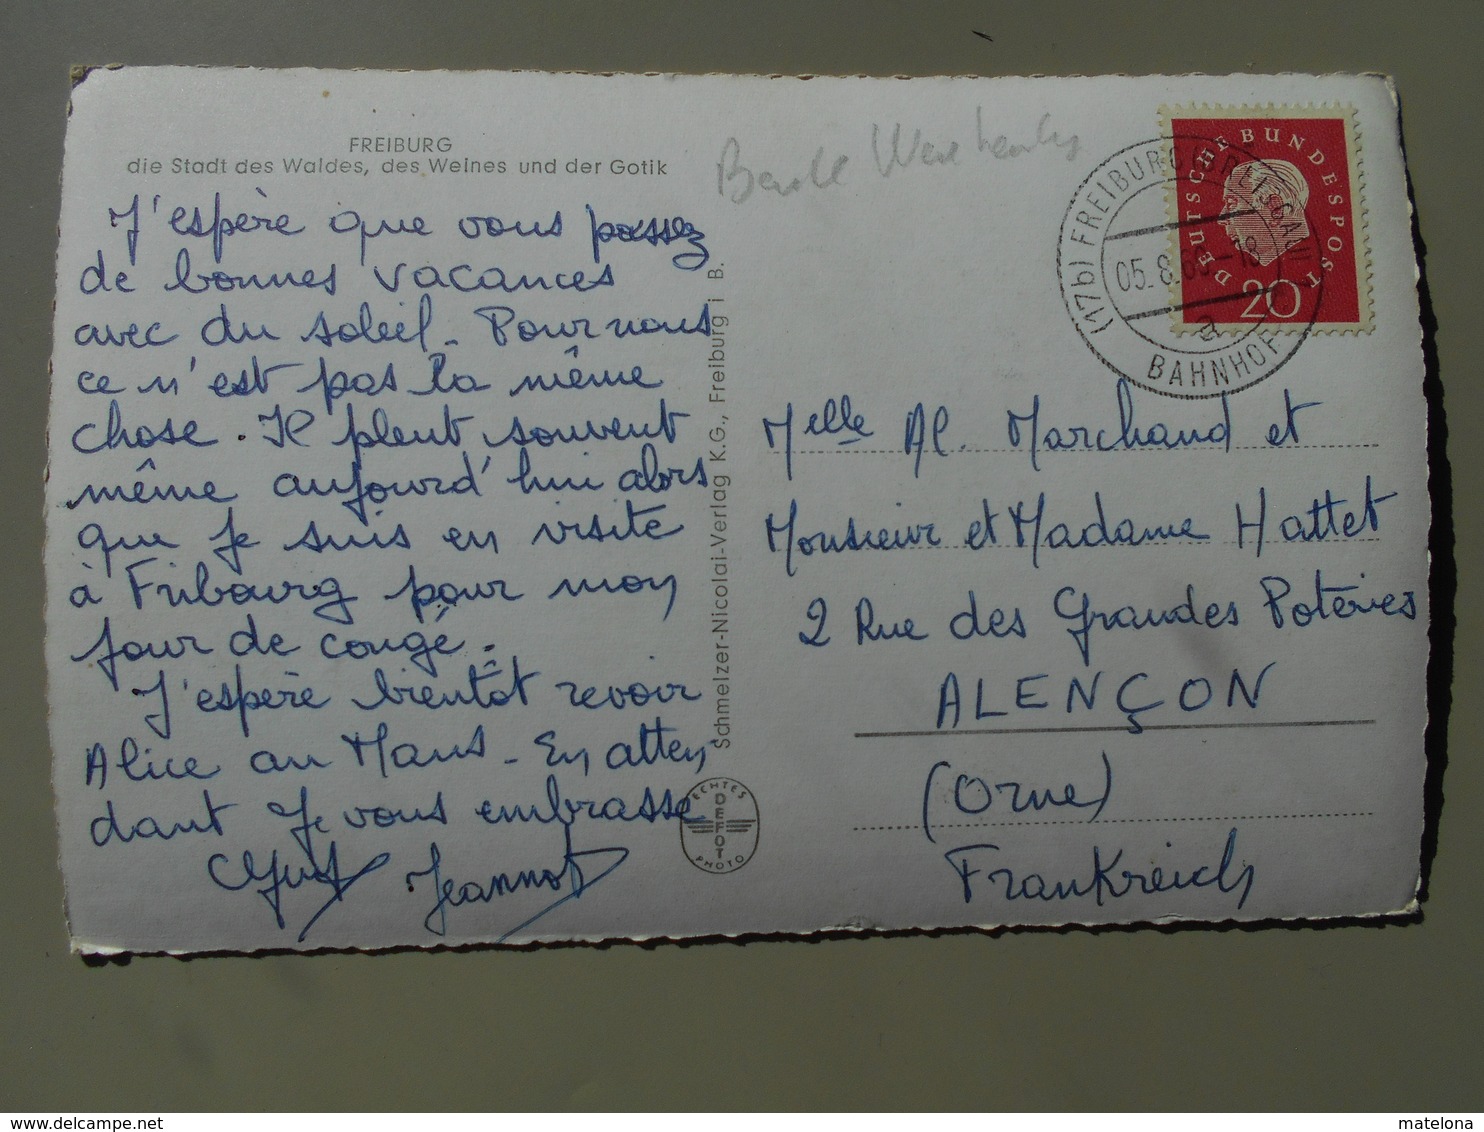 FREIBURG
die Stadt des Waldes, des Weines und der Gotik
J'espère que vous passez
de bonnes vacances
avec du soleil. Pour nous
ce n'est pas la même
chose. Il pleut souvent
même aujourd'hui alors
que je suis en visite
à Fribourg pour mon
jour de congé.
J'espère bientôt revoir
Alice au Mans. En atten
dant je vous embrasse
Jeannot
Schmelzer-Nicolai-Verlag K.G., Freiburg i B.
ECHTES
DEPOT
PHOTO
DEUTSCHE BUNDESPOST
20
(17b) FREIBURG (BREISGAU)
05.8.60-18
a
BAHNHOF
Melle Al. Marchand et
Monsieur et Madame Hattet
2 Rue des Grandes Poteries
ALENÇON
(Orne)
Frankreich
matelona